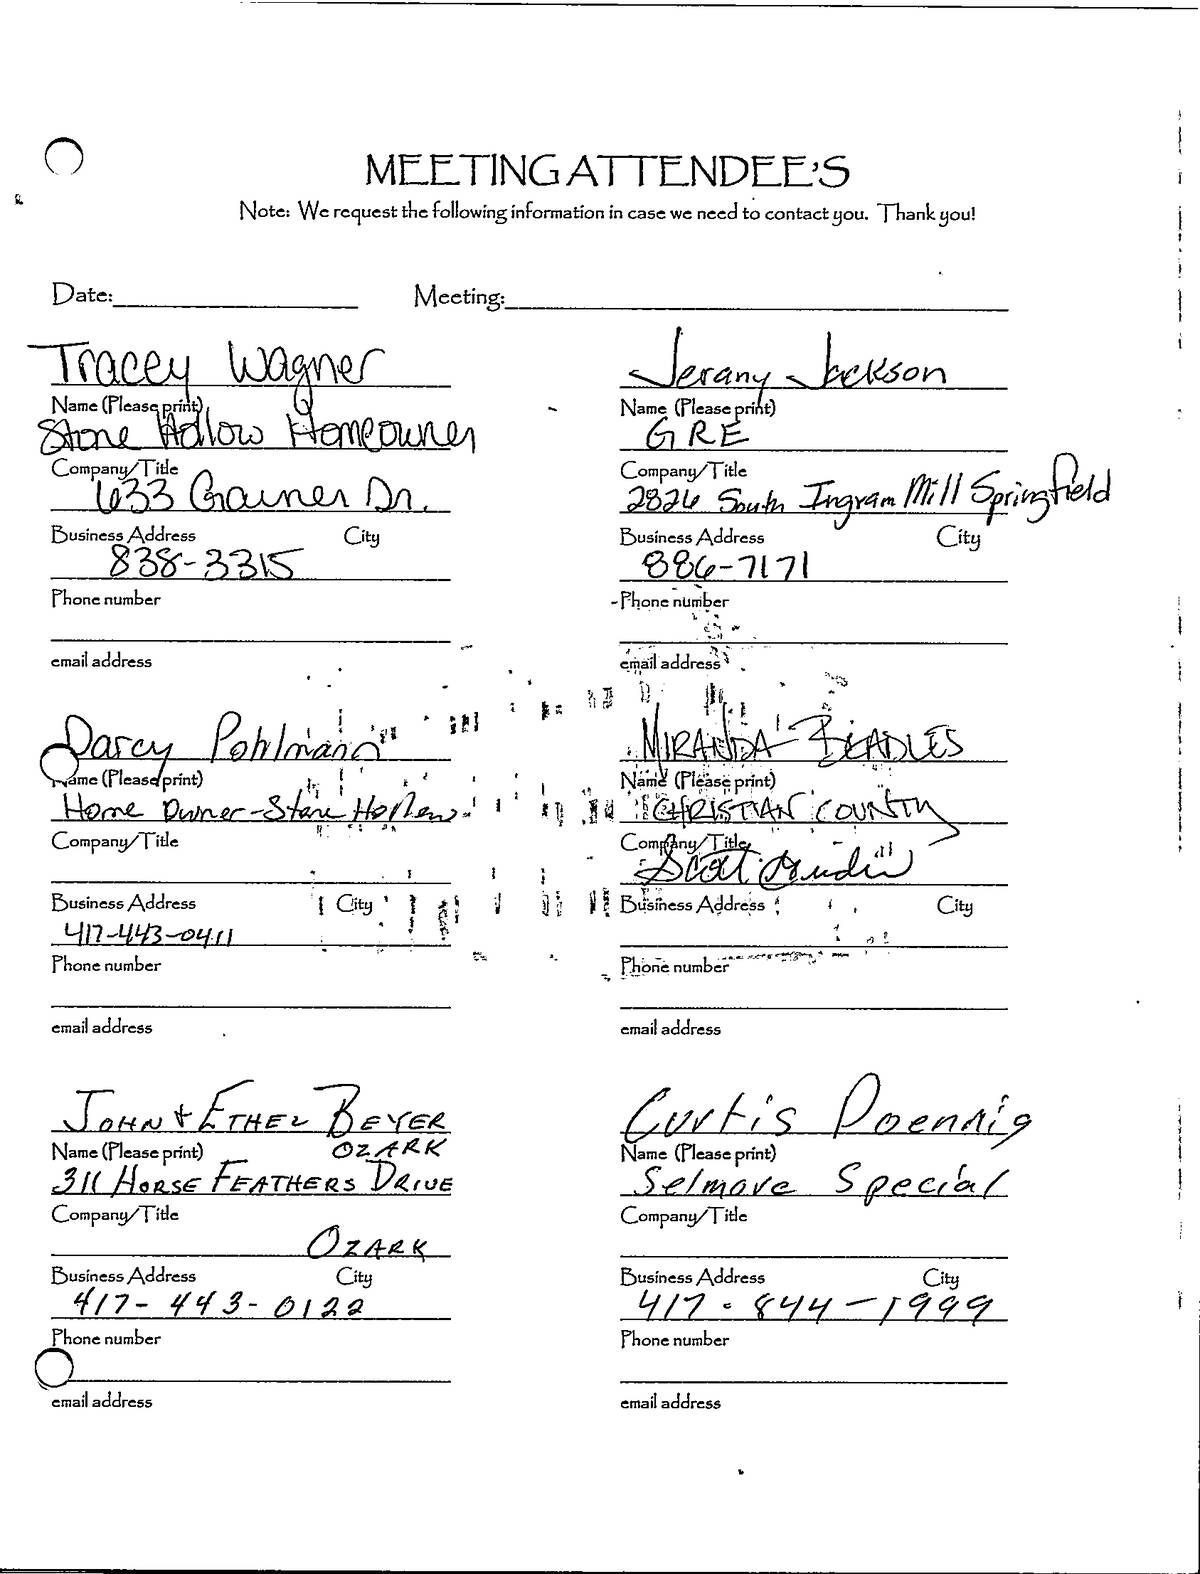 MEETING ATTENDEE'S
Note: We request the following information in case we need to contact you. Thank you!
Date: Meeting:
Tracey Wagner
Name (Please print)
Stone Hollow Homeowner
Company/Title
633 Gainer Dr.
Business Address City
838-3315
Phone number
email address
Jerany Jackson
Name (Please print)
GRE
Company/Title
2826 South Ingram Mill Springfield
Business Address City
886-7171
Phone number
email address
Darcy Pohlmann
Name (Please print)
Home Owner - Stone Hollow
Company/Title
Business Address City
417-443-0411
Phone number
email address
MIRANDA BEADLES
Name (Please print)
CHRISTIAN COUNTY
Company/Title
Scott
Business Address City
Phone number
email address
JOHN + ETHEL BEYER
Name (Please print) OZARK
311 HORSE FEATHERS DRIVE
Company/Title
OZARK
Business Address City
417-443-0122
Phone number
email address
Curtis Doennig
Name (Please print)
Selmore Special
Company/Title
Business Address City
417-844-1999
Phone number
email address